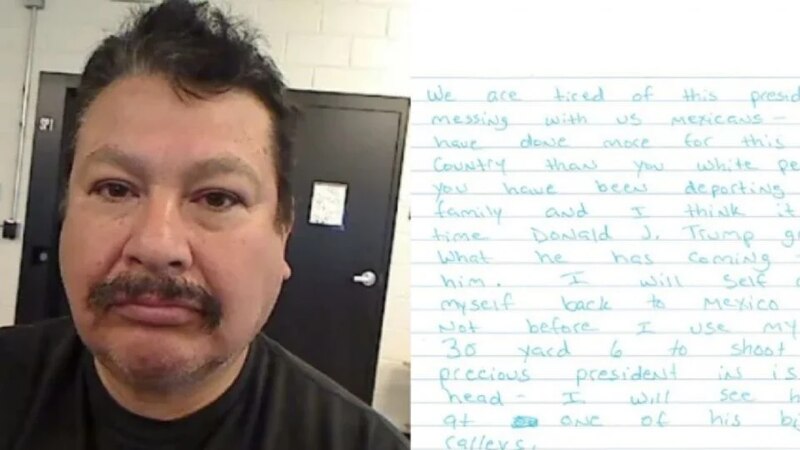 SP1
We are tired of this presid
messing with us mexicans -
have done more for this
Country than you white pe
you have been deporting
family and I think it
time Donald J. Trump g
What he has coming
him. I will self
myself back to mexico
Not before I use my
30 yard 6 to shoot
precious president in is
head - I will see h
at one of his bi
rallers.